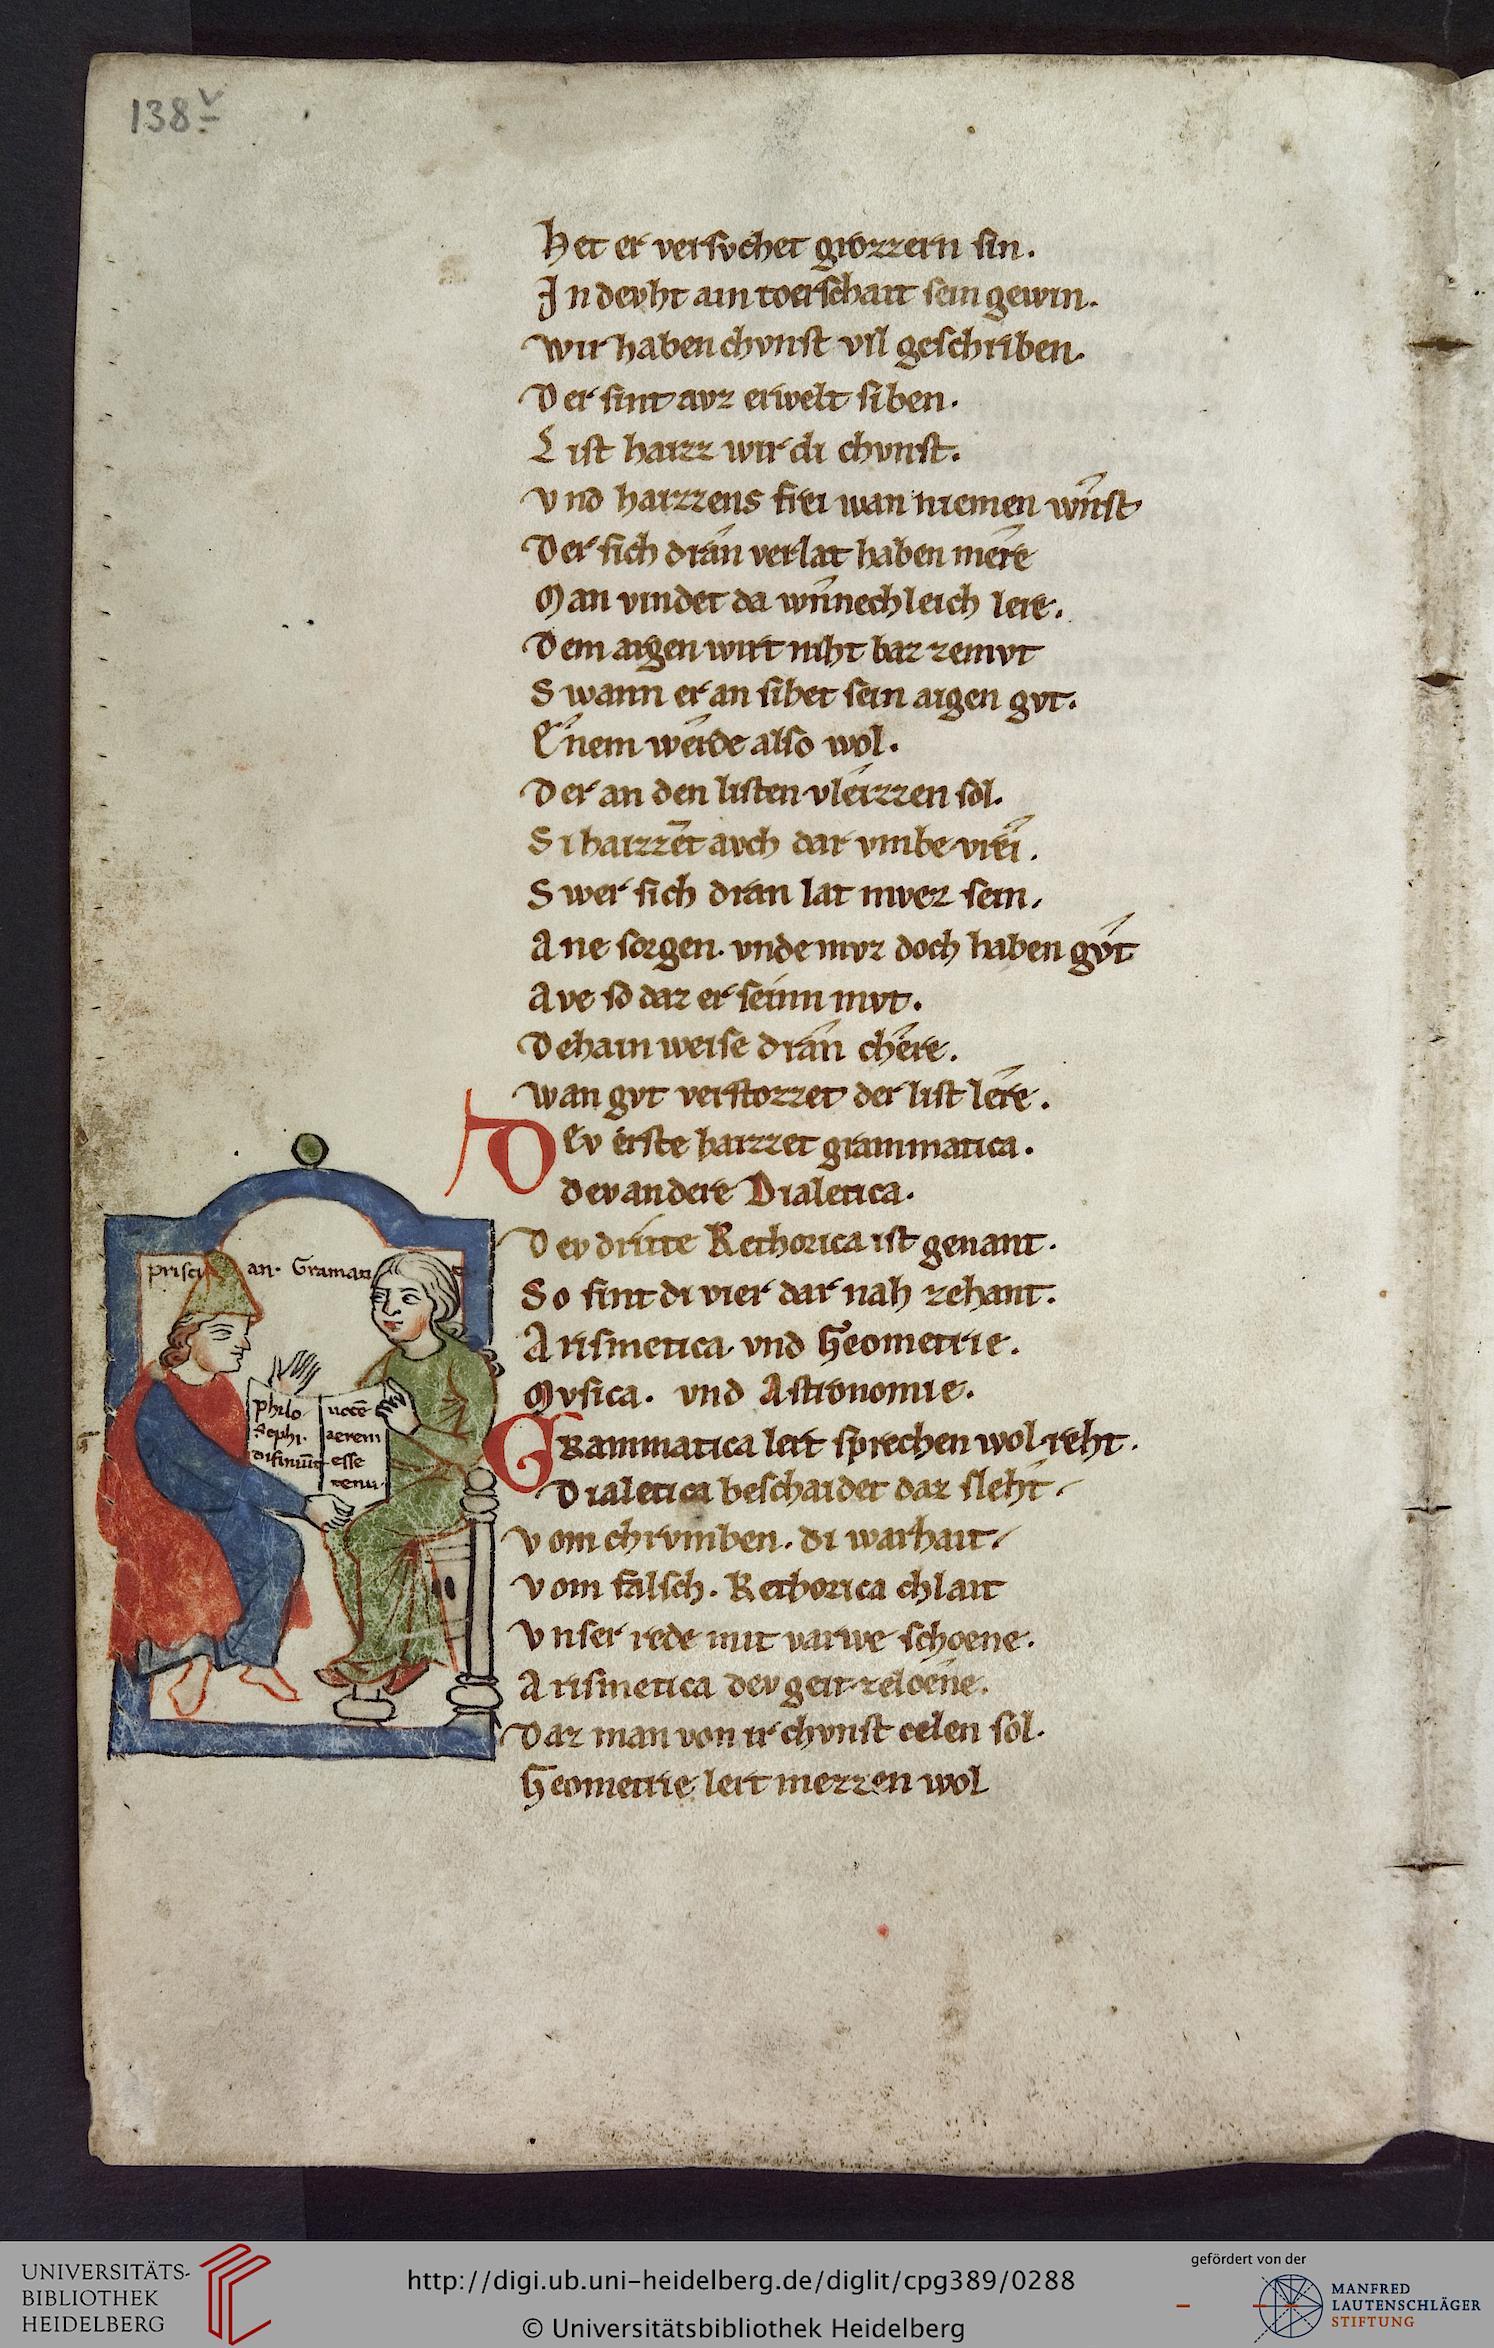 138v
Het er versvchet grozzern sin.
In devht ain toerschait sein gewin.
Wir haben chvnst vil geschriben.
Der sint avz erwelt siben.
List haizz wir di chvnst.
Vnd haizzens frei wan niemen wnst
Der sich dran verlat haben mere
Man vindet da wnnechleich lere.
Dem aigen wirt niht baz zemvt
Swann er an sihet sein aigen gvt.
Ernem werde also wol.
Der an den listen vleizzen sol.
Si haizzent avch dar vmbe vrei.
Swer sich dran lat mvez sein.
Ane sorgen. vnde mvz doch haben gvt
Ave so daz er seinn mvt.
Dehain weise dran chere.
Wan gvt verstozzet der list lere.
Dev erste haizzet grammatica.
dev andere Dialetica.
Dev dritte Rethorica ist genant.
So sint di vier dar nah zehant.
Arismetica vnd Geometrie.
Mvsica. vnd Astronomie.
priscian. Gramatic
philosophi. difiniunt
uocem aerem esse tenu.
GRammatica lert sprechen wol reht.
Dialetica beschaidet daz sleht.
Vom chrvmben. di warhait.
Vom falsch. Rethorica chlait
Vnser rede mit varwe schoene.
Arismetica dev geit zeloene.
Daz man von ir chvnst celen sol.
Geometrie lert mezzen wol
UNIVERSITÄTS-
BIBLIOTHEK
HEIDELBERG
http://digi.ub.uni-heidelberg.de/diglit/cpg389/0288
© Universitätsbibliothek Heidelberg
gefördert von der
MANFRED
LAUTENSCHLÄGER
STIFTUNG